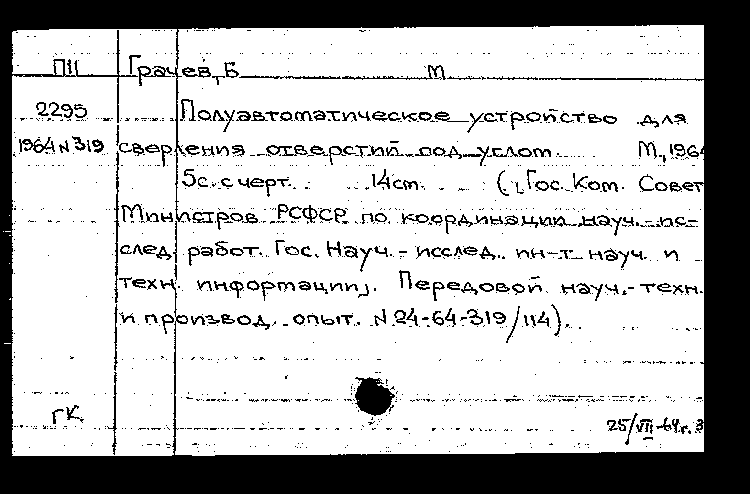 П11 Грачев, Б М
2295 Полуавтоматическое устройство для
1964 N 319 сверления отверстий под углом. М., 1964
5с. с черт. 14см. (Гос. Ком. Совет
Министров РСФСР по координации науч.-ис-
след. работ. Гос. Науч.-исслед. ин-т науч. и
техн. информации). Передовой науч.-техн.
и производ. опыт. N 24-64-319/114).
ГК
25/VII-64г. 3